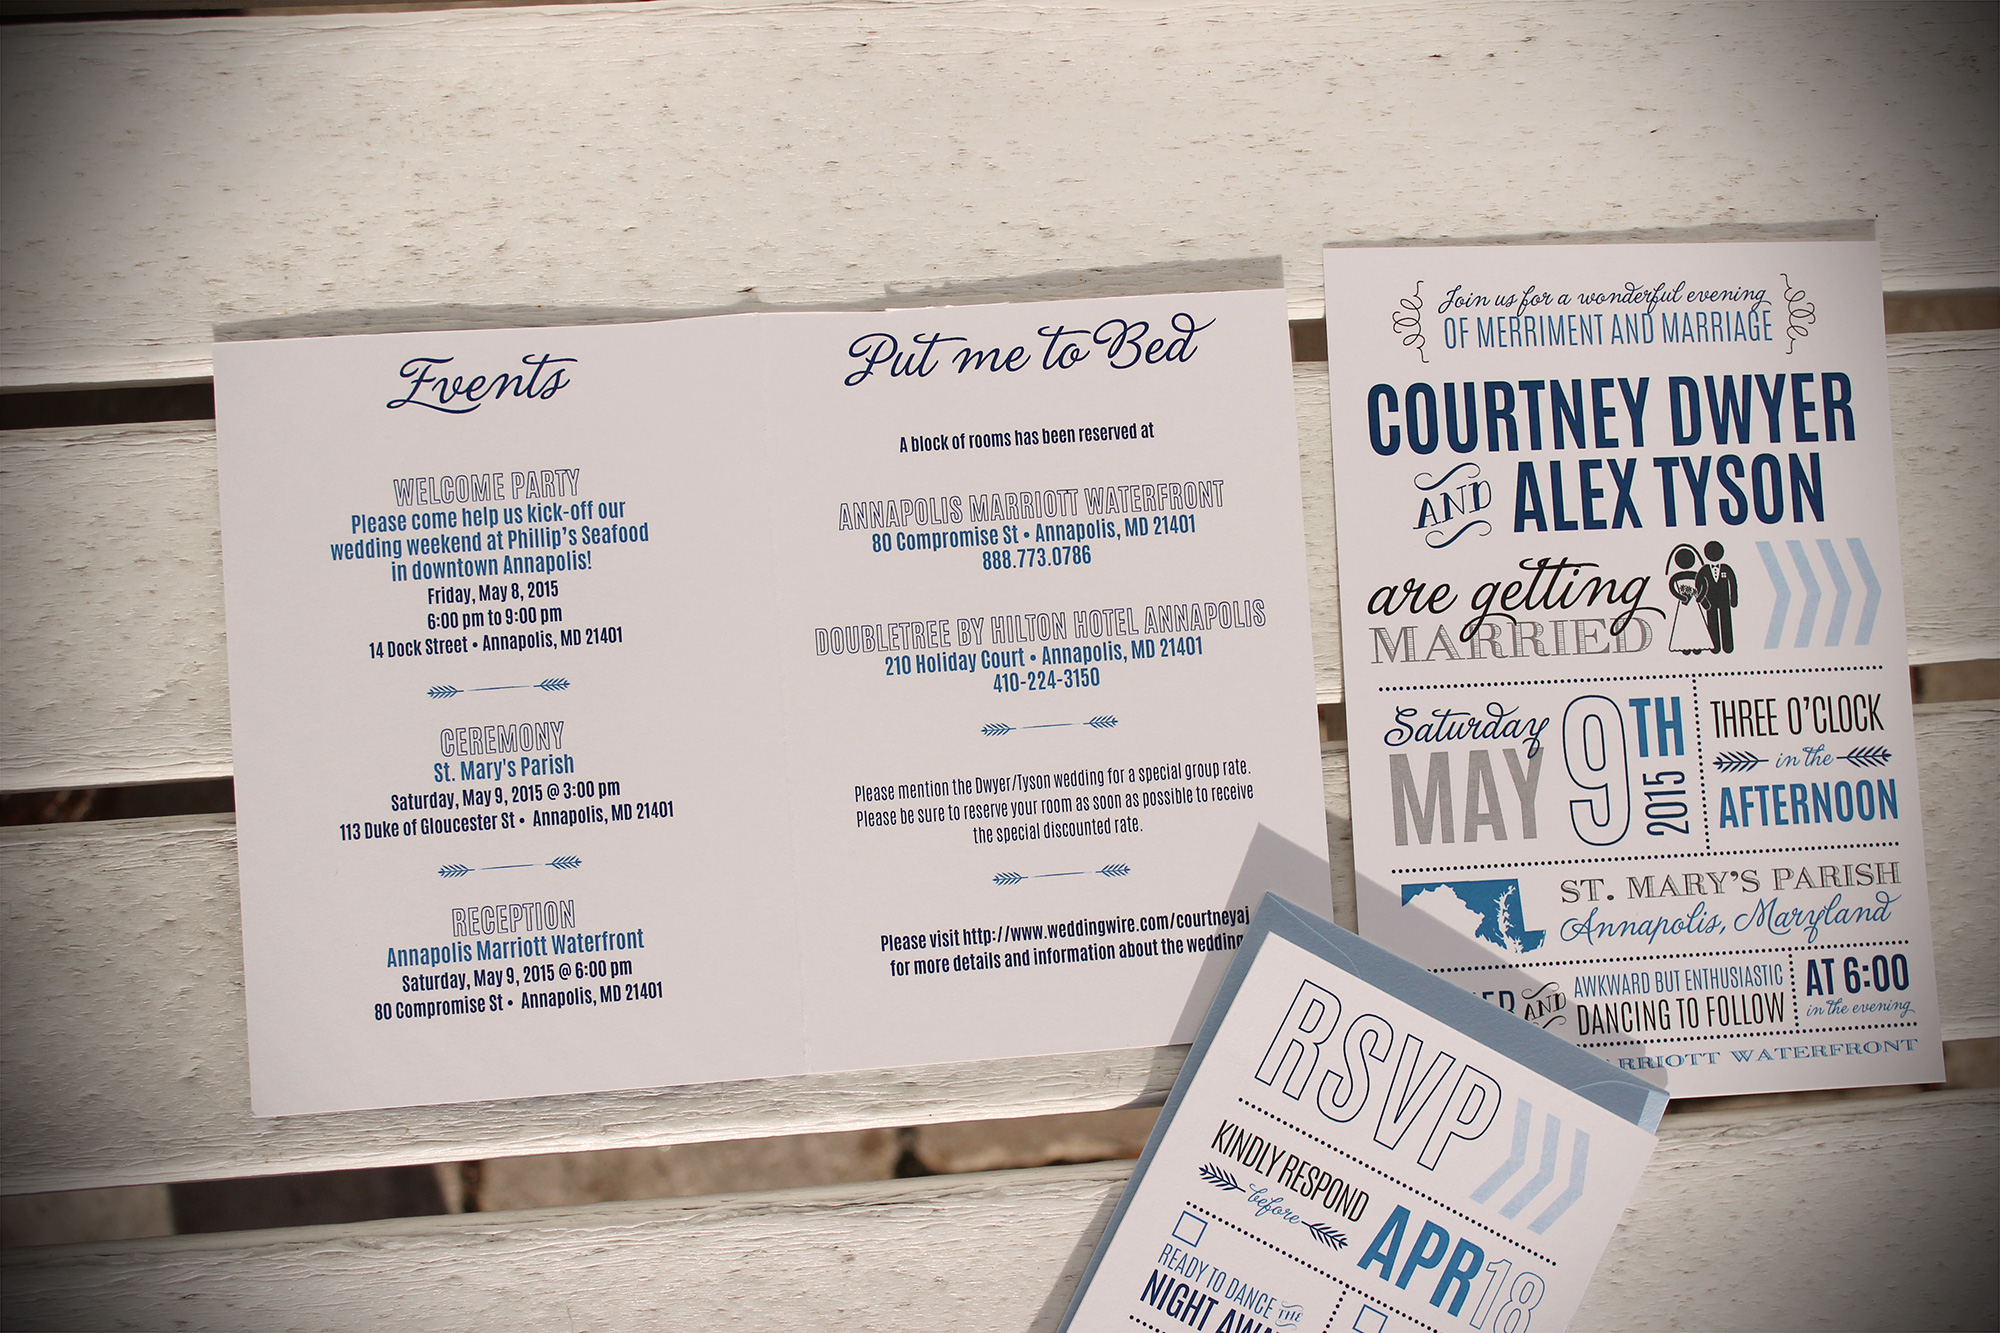 Events
WELCOME PARTY
Please come help us kick-off our
wedding weekend at Phillip's Seafood
in downtown Annapolis!
Friday, May 8, 2015
6:00 pm to 9:00 pm
14 Dock Street • Annapolis, MD 21401
CEREMONY
St. Mary's Parish
Saturday, May 9, 2015 @ 3:00 pm
113 Duke of Gloucester St • Annapolis, MD 21401
RECEPTION
Annapolis Marriott Waterfront
Saturday, May 9, 2015 @ 6:00 pm
80 Compromise St • Annapolis, MD 21401
Put me to Bed
A block of rooms has been reserved at
ANNAPOLIS MARRIOTT WATERFRONT
80 Compromise St • Annapolis, MD 21401
888.773.0786
DOUBLETREE BY HILTON HOTEL ANNAPOLIS
210 Holiday Court • Annapolis, MD 21401
410-224-3150
Please mention the Dwyer/Tyson wedding for a special group rate.
Please be sure to reserve your room as soon as possible to receive
the special discounted rate.
Please visit http://www.weddingwire.com/courtneyaj
for more details and information about the wedding
Join us for a wonderful evening
OF MERRIMENT AND MARRIAGE
COURTNEY DWYER
AND ALEX TYSON
are getting
MARRIED
Saturday
MAY 9TH
2015
THREE O'CLOCK
in the
AFTERNOON
ST. MARY'S PARISH
Annapolis, Maryland
AND
AWKWARD BUT ENTHUSIASTIC
DANCING TO FOLLOW
AT 6:00
in the evening
WATERFRONT
RSVP
KINDLY RESPOND
before
APR 18
READY TO DANCE THE
NIGHT